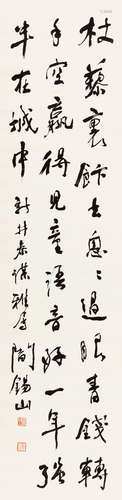 杖藜裹飯去怱々過眼青錢轉
手空贏得兒童語音好一年強
半在城中 新井雅屬 閻錫山